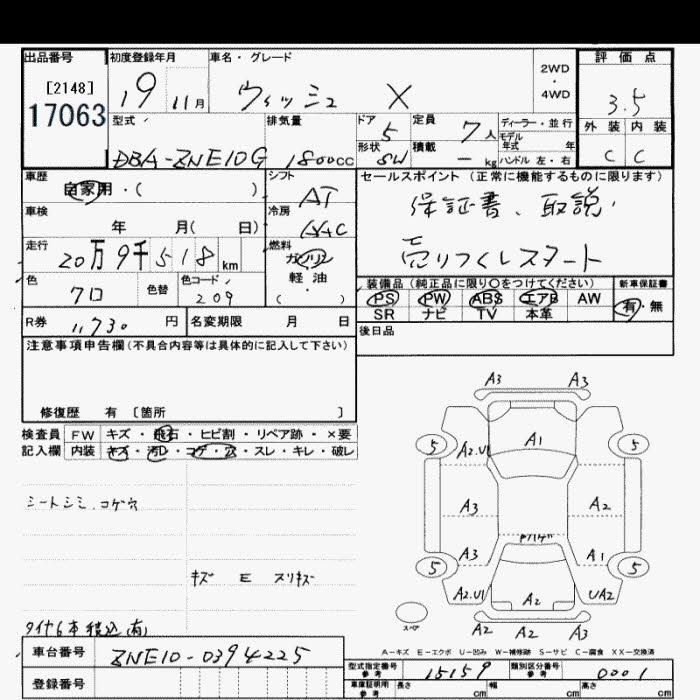 出品番号 初度登録年月 車名・グレード 2WD・4WD 評価点
[2148]
17063
19 11月 ウィッシュ X 3.5
型式 排気量 ドア 5 定員 7人 ディーラー・並行 外装 内装
モデル
年式 年
DBA-ZNE10G 1800cc 形状 SW 積載 - kg ハンドル 左・右 C C
車歴 シフト セールスポイント (正常に機能するものに限ります)
自家用・( ) AT 保証書、取説、
車検 年 月( 日) 冷房 AAC
走行 20万9千518km 燃料 ガソリン・軽油 ( ) 売りつくしスタート
色 クロ 色替 色コード 209
装備品 (純正品に限り○をつけてください) 新車保証書
PS PW ABS エアB AW 有・無
SR ナビ TV 本革
R券 11,730 円 名変期限 月 日 後日品
注意事項申告欄(不具合内容等は具体的に記入して下さい)
修復歴 有 〔箇所 〕
検査員 FW キズ・飛石・ヒビ割・リペア跡・×要
記入欄 内装 キズ・汚レ・コゲ・穴・スレ・キレ・破レ
シートシミ、コゲ穴
キズ E スリキズ
タイヤ6本積込(有)
A3 A3
5 A2.U1 A1 5
A3 A2
A3 A1
5 A2.U1 A2 UA2 5
スペア A2 A2 A3
A－キズ E－エクボ U－凹み W－補修跡 S－サビ C－腐食 XX－交換済
車台番号 ZNE10-0394225
登録番号
型式指定番号 参考 15159 類別区分番号 参考 0001
車庫証明用 参考 長さ cm 幅 cm 高さ cm